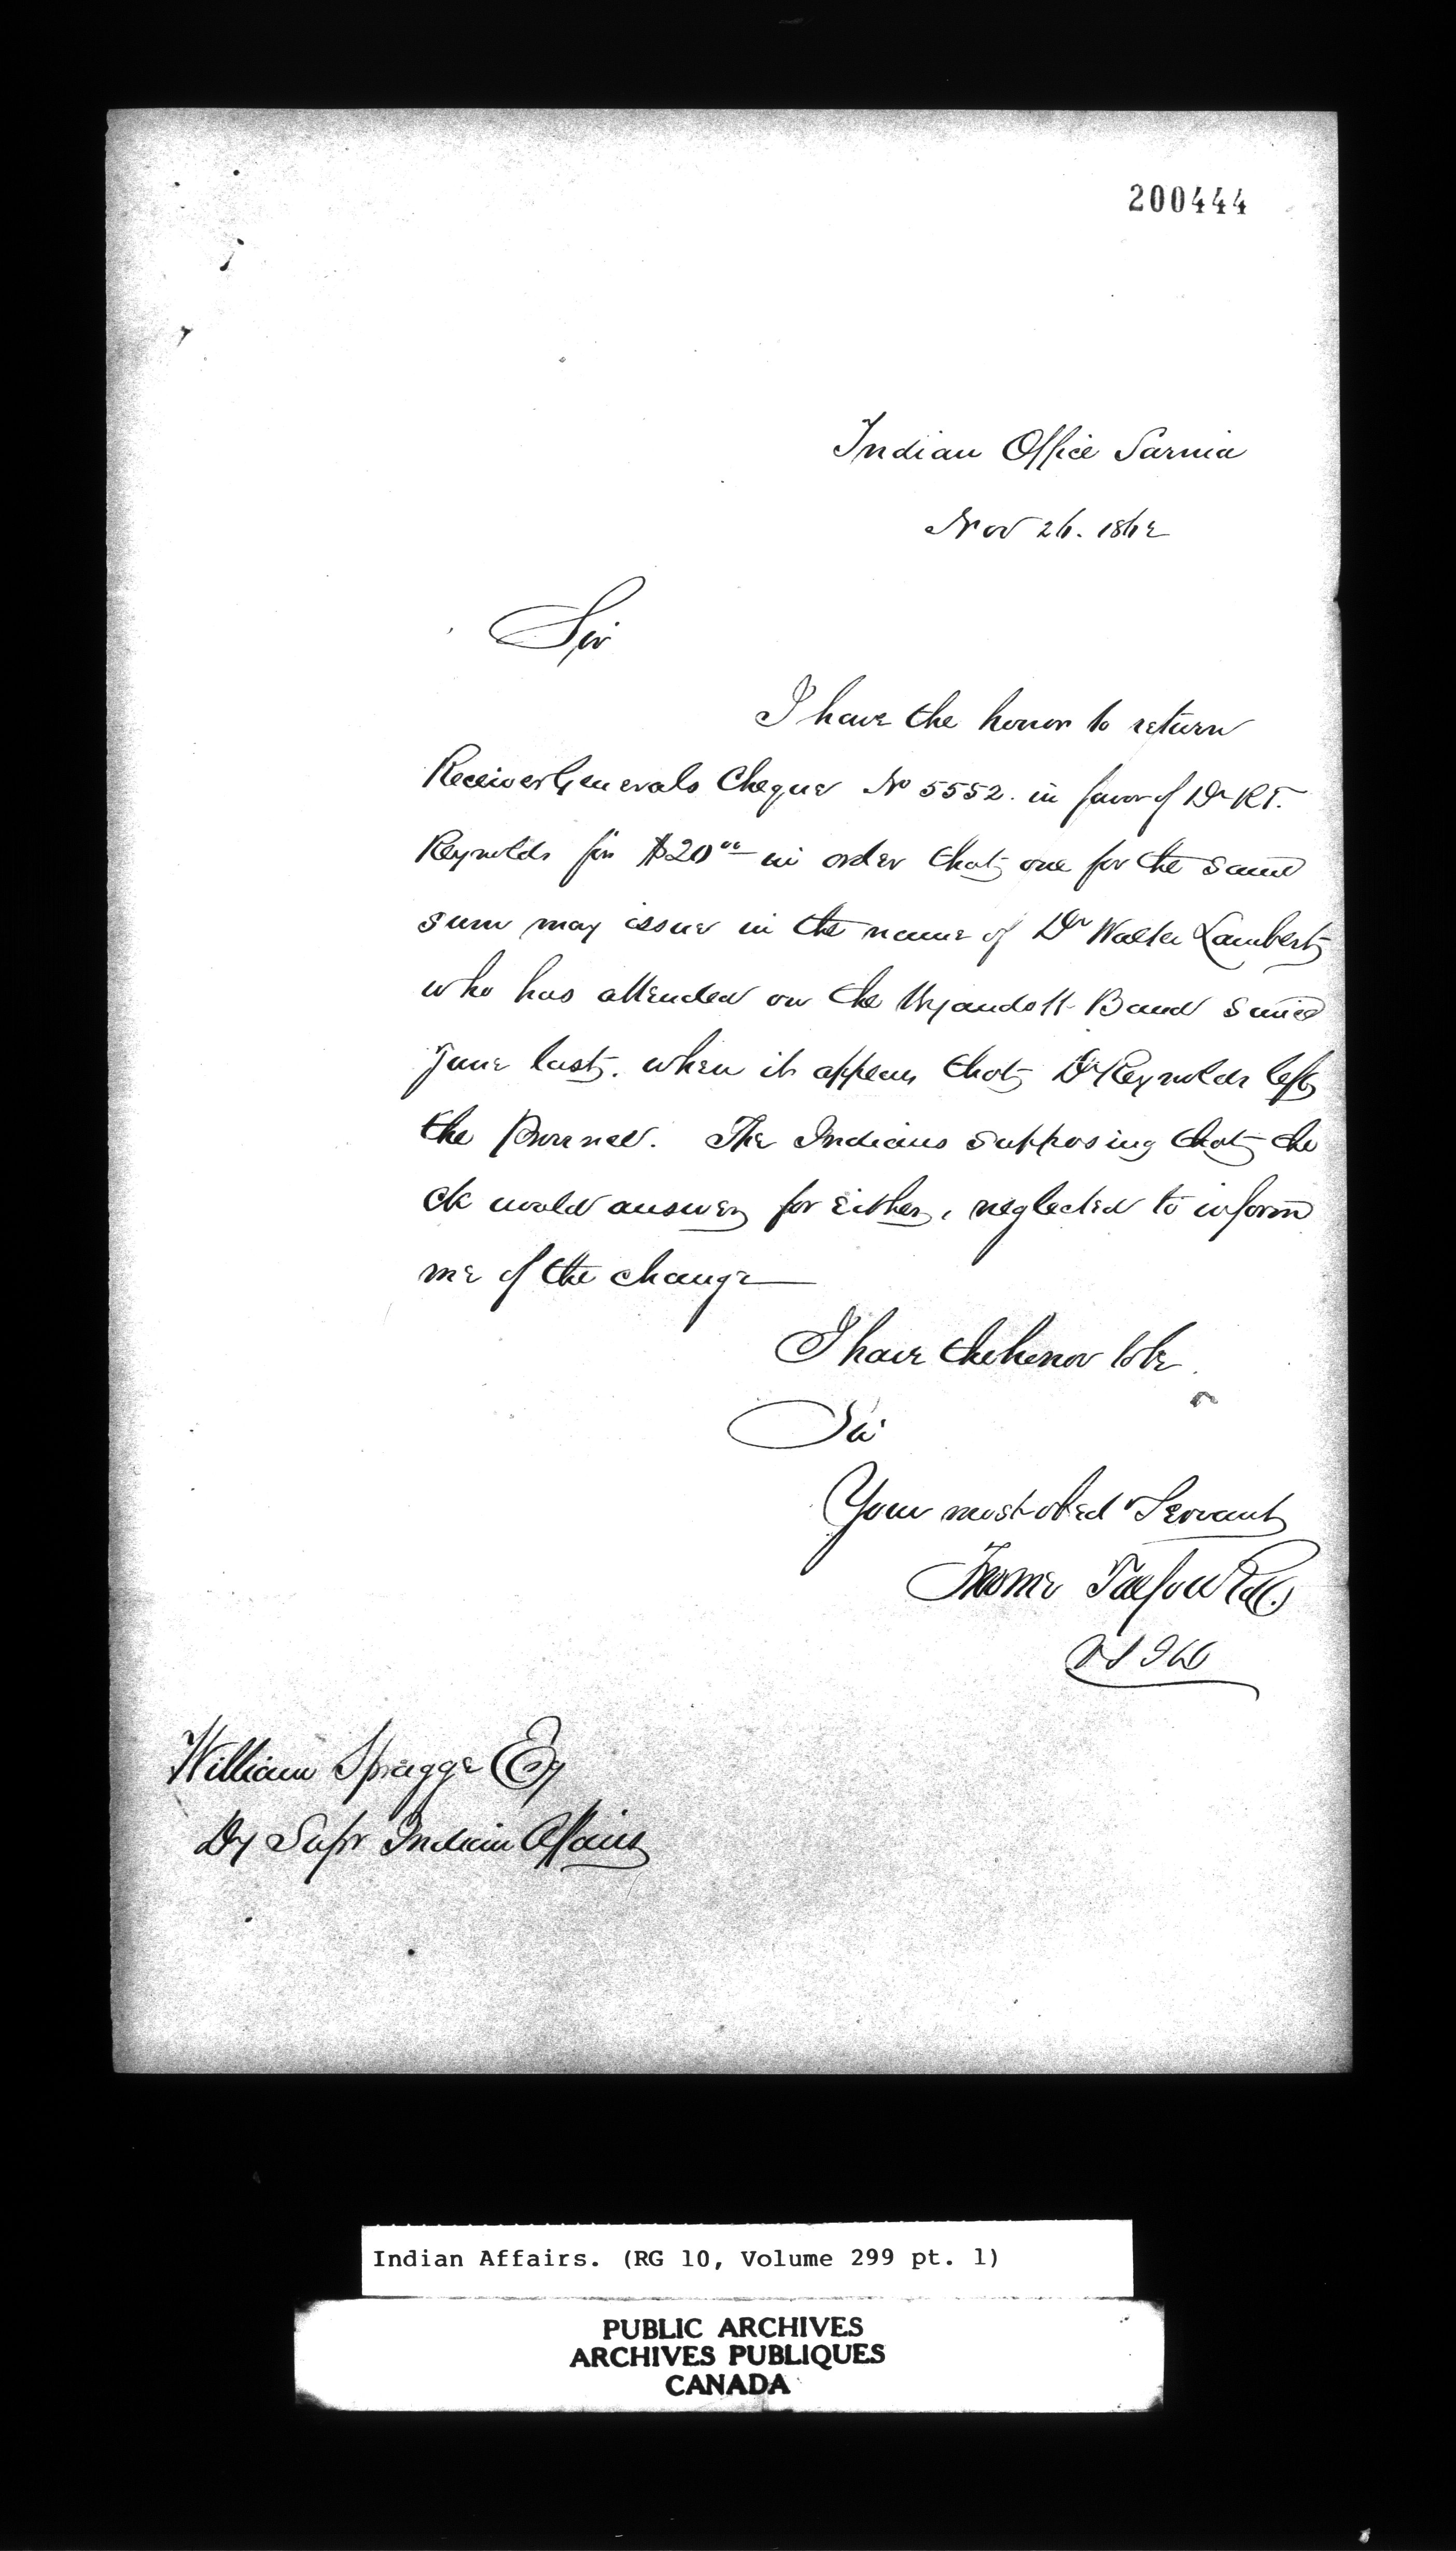 200444
Indian Office Sarnia
Nov 26. 1862
Sir
I have the honor to return
Receiver Generals Cheque No 5552. in favor of Dr R T.
Reynolds for $20 00 in order that one for the same
sum may issue in the name of Dr Walter Lambert
who has attended on the Wyandott Band since
June last. when it appears that Dr Reynolds left
the Province. The Indians supposing that the
ck would answer for either, neglected to inform
me of the change
I have the honor to be
Sir
Your most obed Servant
Froome Talfourd
V S I A
William Spragge Esq
Dy Supr Indian Affairs
Indian Affairs. (RG 10, Volume 299 pt. 1)
PUBLIC ARCHIVES
ARCHIVES PUBLIQUES
CANADA